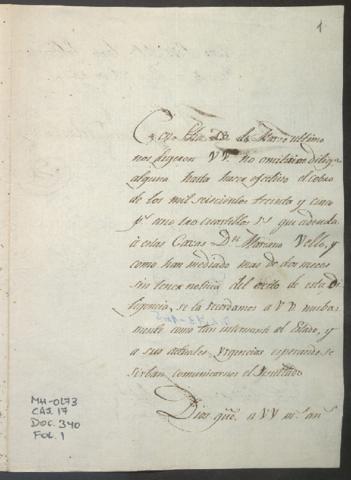 1
Con fha 28 de Marzo ultimo
nos digeron VV. no omitirian diliga
alguna hasta hacer efectivo el cobro
de los mil seiscientos treinta y cinco
pˢ uno tres cuartillos rˢ que adeuda
à estas Caxas Dⁿ Mariano Vello, y
como han mediado mas de dos meses
sin tener noticia del exîto de esta di
ligencia, se la recordamos a VV. nueba-
mente como tan interesante al Estado, y
a sus actuales urgencias esperando se
sirban comunicarnos el resultado
Dios gũe. a VV mˢ. anˢ
MH-0173
CAJ. 17
DOC. 340
FOL. 1